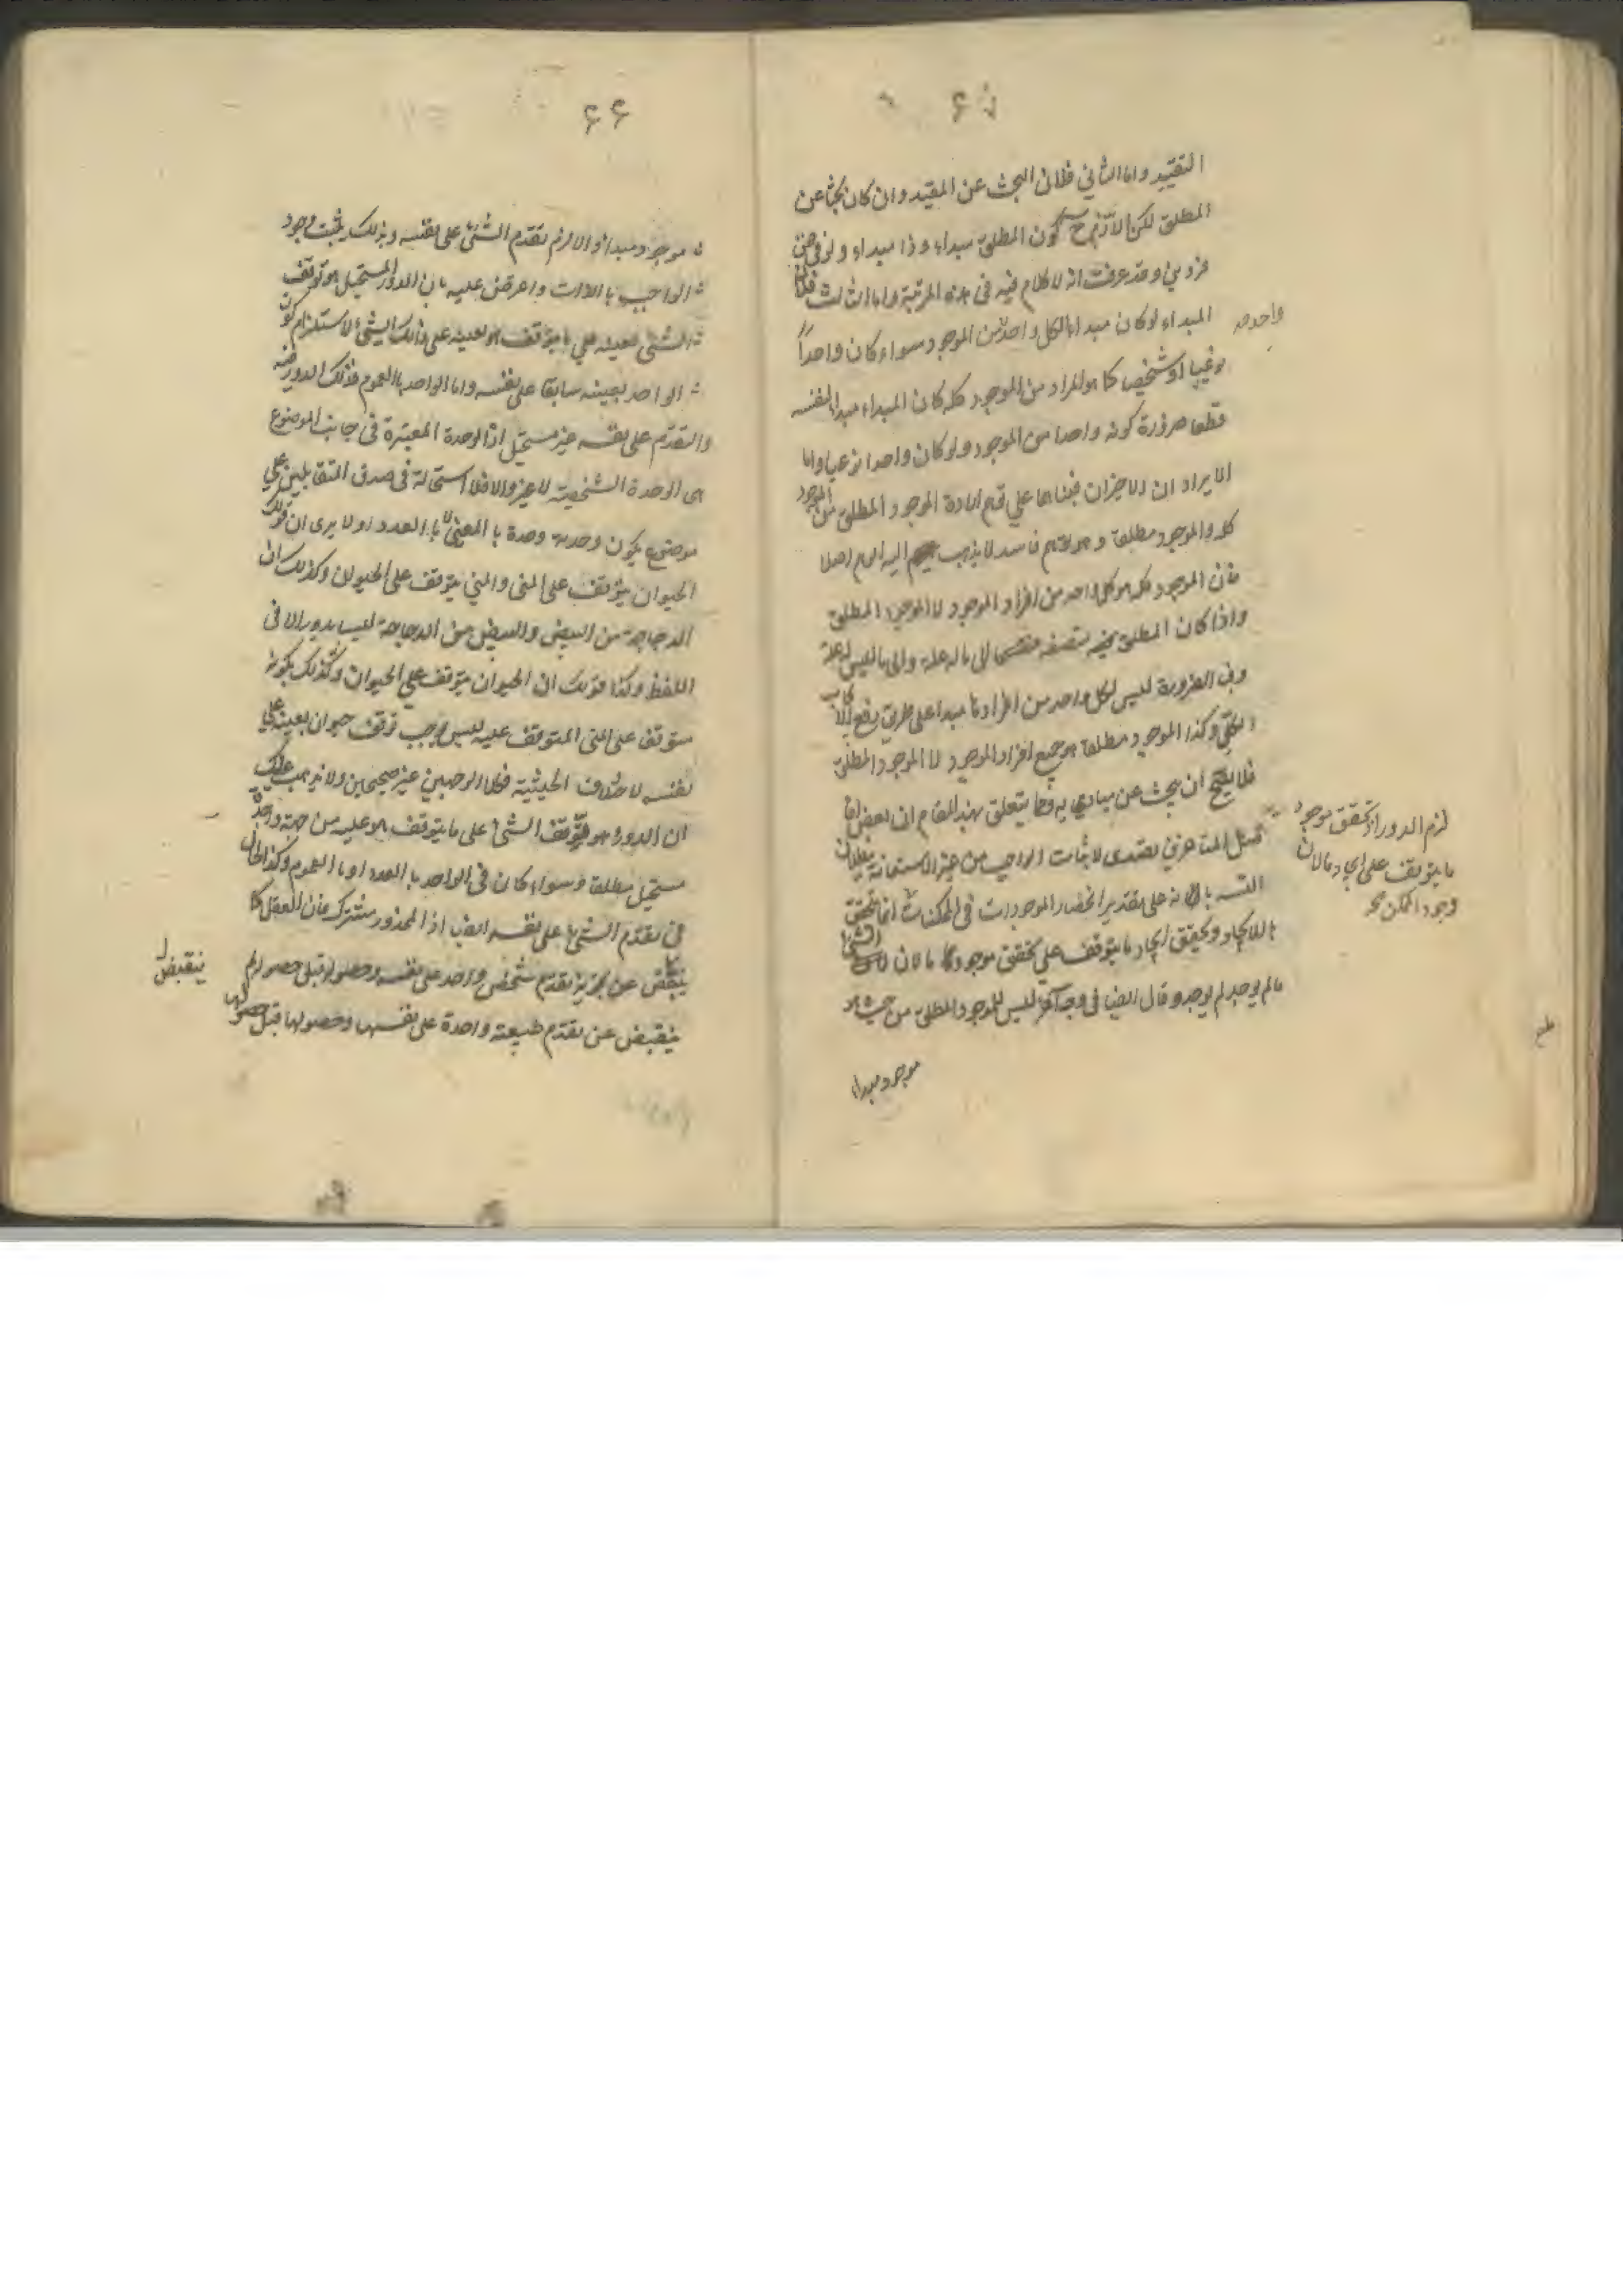 ۶۵
التقييد واما الثاني فلان البحث عن المقيد وان كان بحثا عن
المطلق لكن اللازم ح كون المطلق مبداء وذا مبداء ولو في ضمن
فردين وقد عرفت انه لا كلام فيه في هذه المرتبة واما الثالث فلان
المبداء لو كان مبداء لكل واحد من الموجود سواء كان واحداً
نوعيا او شخصيا كما هو المراد من الموجود كله كان المبداء مبداء لنفسه
قطعا ضرورة كونه واحدا من الموجود ولو كان واحدا نوعيا واما
الايراد ان الاخيران فبناهما على توهم ارادة الموجود المطلق من الموجود
كله والموجود مطلقا وهو توهم فاسد لا يذهب اليه الوهم اصلا
فان الموجود كله هو كل واحد من افراد الموجود لا الموجود المطلق
واذا كان المطلق منقسما الى ما له علة والى ما ليس له علة
وفى الضرورة ليس لكل واحد من افراده مبدا على طريق رفع الايجاب
الكلي وكذا الموجود مطلقا هو جميع افراد الموجود لا الموجود المطلق
فلا يصح ان يبحث عن مباديه ومما يتعلق بهذا المقام ان بعض
المتاخرين تصدى لاثبات الواجب من غير الاستعانة ببطلان
التسـ بانه على تقدير انحصار الموجودات في الممكنات
بالايجاد وتحقق ايجاد ما يتوقف على تحقق موجود ما لان الشئ
مالم يوجد لم يوجد وقال ايضا فى وجه آخر ليس للموجود المطلق من حيث هو
موجود مبداء
واحد صح
لزم الدور اذ تحقق موجود
ما يتوقف على ايجاد ما لان
وجود الممكن
۶۶
موجود مبداء والا لزم تقدم الشئ على نفسه وبذلك يثبت وجود
الواجب بالذات واعترض عليه بان الدور المستحيل هو توقف
الشئ بعينه على ما يتوقف هو بعينه على ذلك الشئ لاستلزام كون
الواحد بعينه سابقا على نفسه واما الواحد بالعموم فذلك الدور فيه
والتقدم على نفسه غير مستحيل اذ الوحدة المعتبرة فى جانب الموضوع
هى الوحدة الشخصية لا غير والا فلا استحالة فى صدق المتقابلين على
موضوع يكون وحدته وحدة بالمعنى لا بالعدد او لا يرى ان قولك
الحيوان يتوقف على المنى والمني يتوقف على الحيوان وكذلك ان
الدجاجة من البيض والبيض من الدجاجة ليس بدور الا فى
اللفظ وكذا قولك ان الحيوان يتوقف على الحيوان وكذلك بكونه
متوقف على المنى المتوقف عليه ليس يوجب توقف حيوان بعينه على
نفسه لاختلاف الحيثية فكلا الوجهين غير صحيحين ولا يذهب عليك
ان الدور هو توقف الشئ على ما يتوقف هو عليه من جهة واحدة
مستحيل مطلقا وسواء كان فى الواحد بالعدد او بالعموم وكذا الحال
فى تقدم الشئ على نفسه ايضا اذ المحذور مشترك فان العقل كما
ينقبض عن تجويز تقدم شخص واحد على نفسه وحصوله قبل حصوله
ينقبض عن تقدم طبيعة واحدة على نفسها وحصولها قبل حصولها
ينقبض